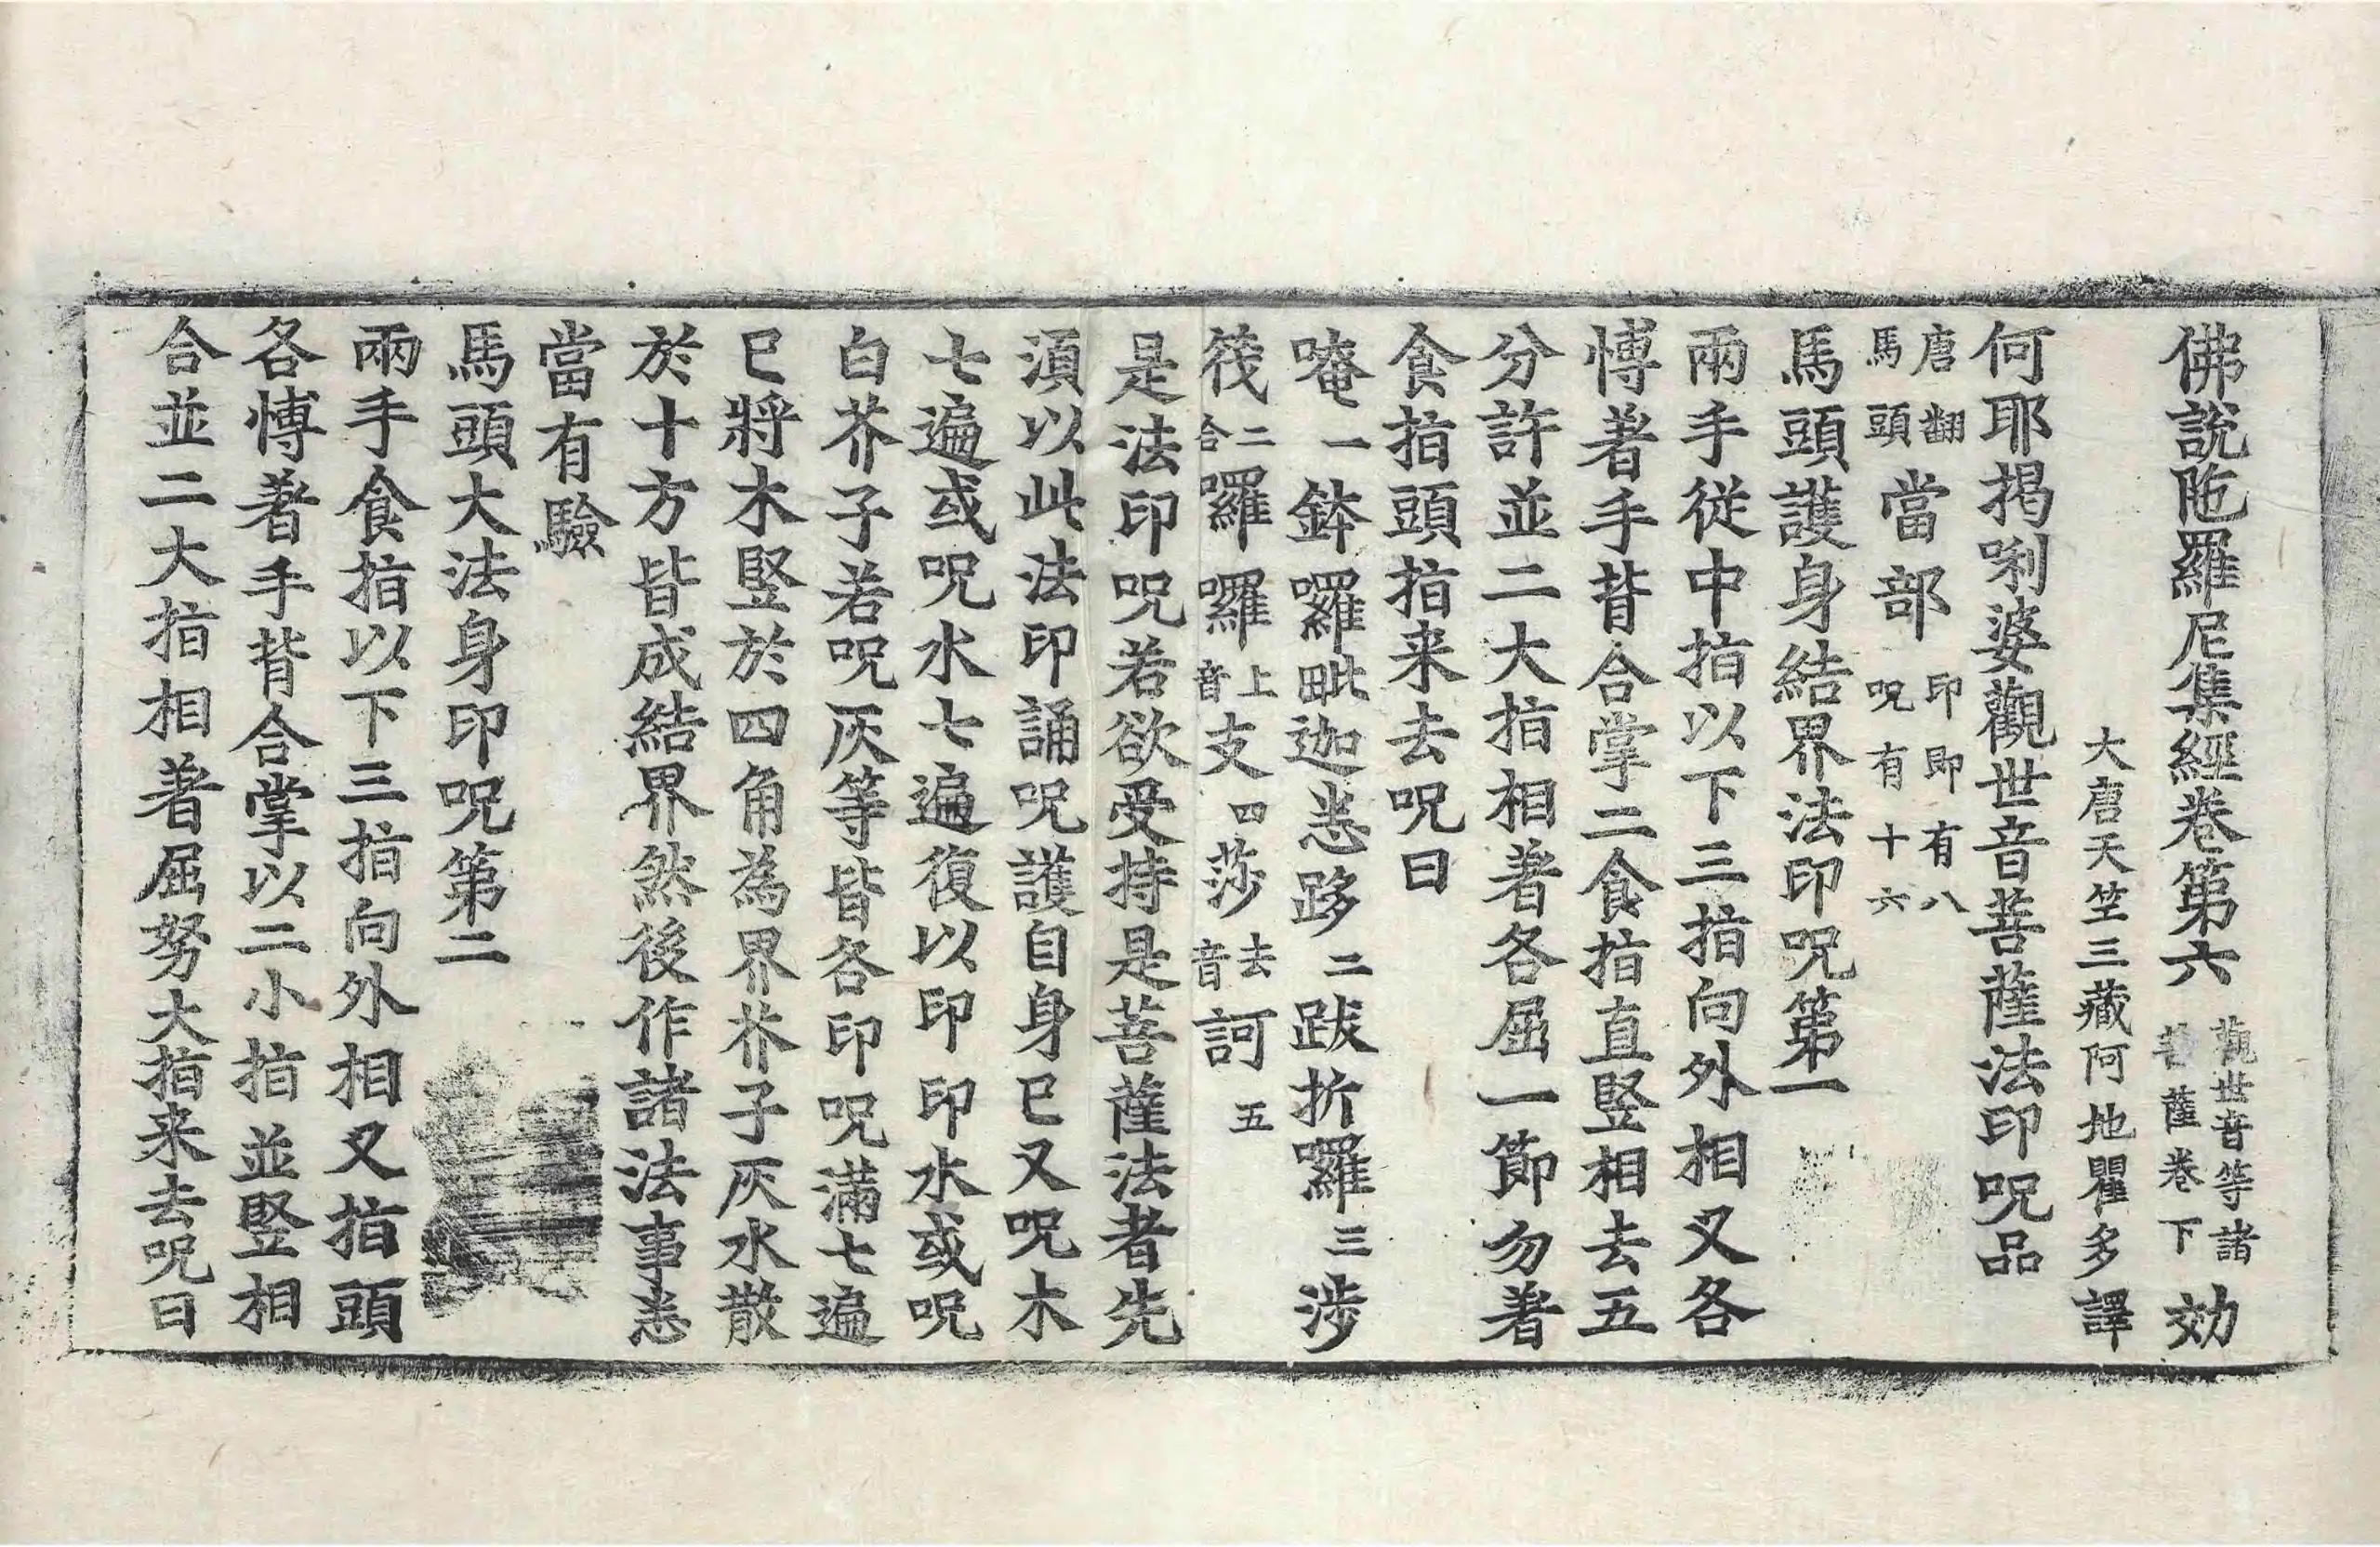 佛說陁羅尼集經卷第六 觀世音等諸菩薩卷下 効
大唐天竺三藏阿地瞿多譯
何耶揭唎婆觀世音菩薩法印呪品
唐翻馬頭當部印即有八呪有十六
馬頭護身結界法印呪第一
兩手從中指以下三指向外相叉各
愽著手背合掌二食指直竪相去五
分許並二大指相著各屈一節勿著
食指頭指来去呪曰
唵一鉢囉毗迦悉跢二跋折囉三涉
筏二合囉囉上音支四莎去音訶五
是法印呪若欲受持是菩薩法者先
湏以此法印誦呪護自身已又呪木
七遍或呪水七遍復以印印水或呪
白芥子若呪灰等皆各印呪滿七遍
已將木竪於四角為界芥子灰水散
於十方皆成結界然後作諸法事悉
當有驗
馬頭大法身印呪第二
兩手食指以下三指向外相叉指頭
各愽著手背合掌以二小指並竪相
合並二大指相著屈努大指来去呪曰